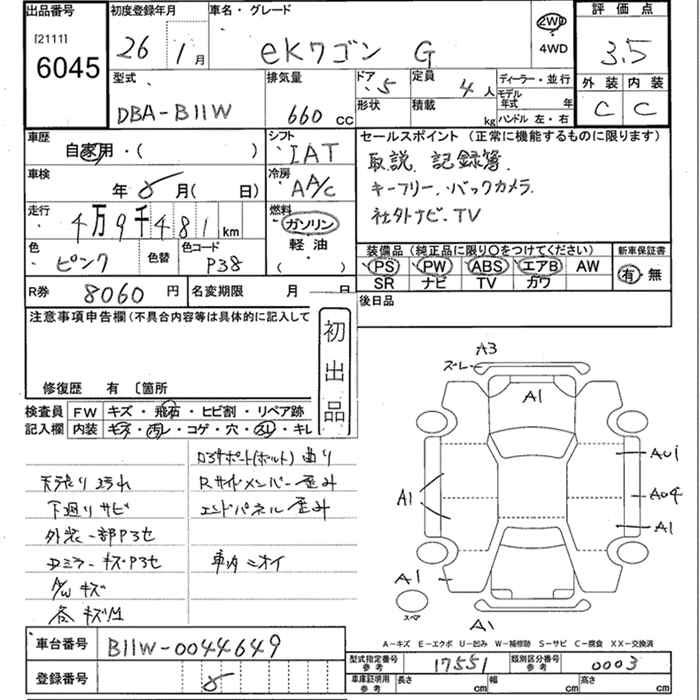 出品番号
[21111]
6045
初度登録年月
26 年 1月
車名・グレード
eKワゴン G
2WD
4WD
評価点
3.5
外装 内装
C C
型式
DBA-B11W
排気量
660 cc
ドア 5
形状
定員 4人
積載 kg
ディーラー・並行
モデル年式 年
ハンドル 左・右
車歴
自家用・( )
シフト
IAT
車検
年 月( 日)
冷房
AA/C
走行
4万9千481 km
燃料
ガソリン
軽油
( )
色
ピンク
色替
色コード
P38
R券 8060 円
名変期限 月 日
セールスポイント(正常に機能するものに限ります)
取説 記録簿
キーフリー. バックカメラ.
社外ナビ. TV
装備品(純正品に限り〇をつけてください)
PS PW ABS エアB AW
SR ナビ TV ガワ
新車保証書
有・無
後日品
注意事項申告欄(不具合内容等は具体的に記入して
修復歴 有 〔箇所
初出品
検査員記入欄
FW キズ・飛石・ヒビ割・リペア跡
内装 キズ・汚レ・コゲ・穴・スレ・キレ
天張り汚れ
下廻りサビ
外装一部P3セ
Dミラーキズ・P3セ
A/Wキズ
各キズM
ロアサポート(ボルト)曲り
Rサイドメンバー歪み
エンドパネル歪み
車内ニオイ
ズレ A3
A1
A1
A1
A1
A1
スペア
A-キズ E-エクボ U-凹み W-補修跡 S-サビ C-腐食 XX-交換済
車台番号 B11W-0044649
登録番号
型式指定番号 参考 17551
類別区分番号 参考 0003
車庫証明用 参考 長さ cm 幅 cm 高さ cm